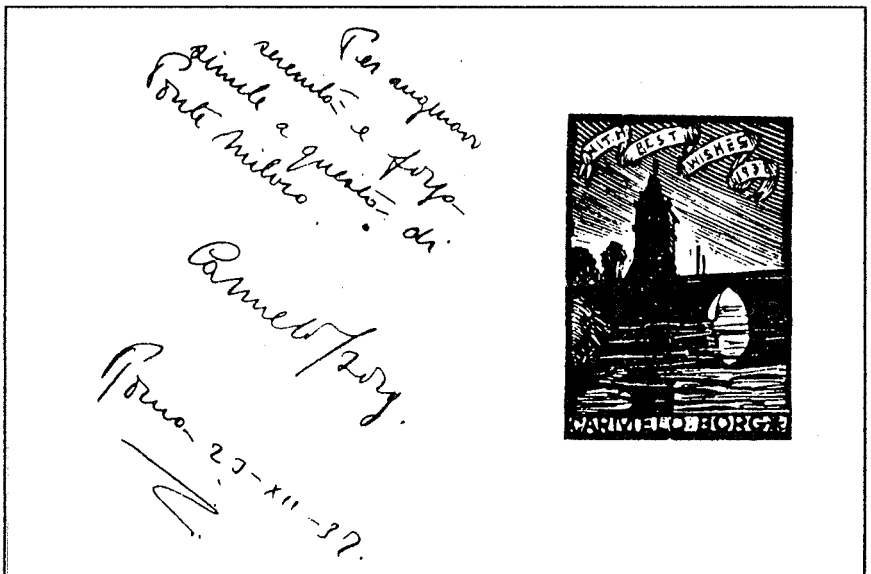 Per augurarvi
serenità e forza
simile a questa di
Ponte Milvio.
Carmelo Borg.
Roma 23-XII-37.
WITH BEST WISHES 1938
CARMELO BORG